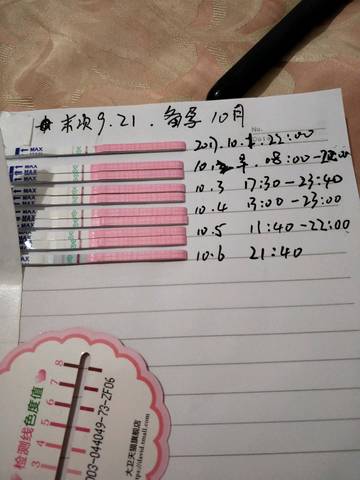 末次9.21.备孕10月
No.
2017.10.1.22:00
10.2 早.08:00-22:00
10.3 17:30-23:40
10.4 13:00-23:00
10.5 11:40-22:00
10.6 21:40
MAX
MAX
MAX
MAX
MAX
MAX
检测线色度值
8
7
6
5
4
3
003-044049-73-ZF06
大卫天猫旗舰店
https://david.tmall.com